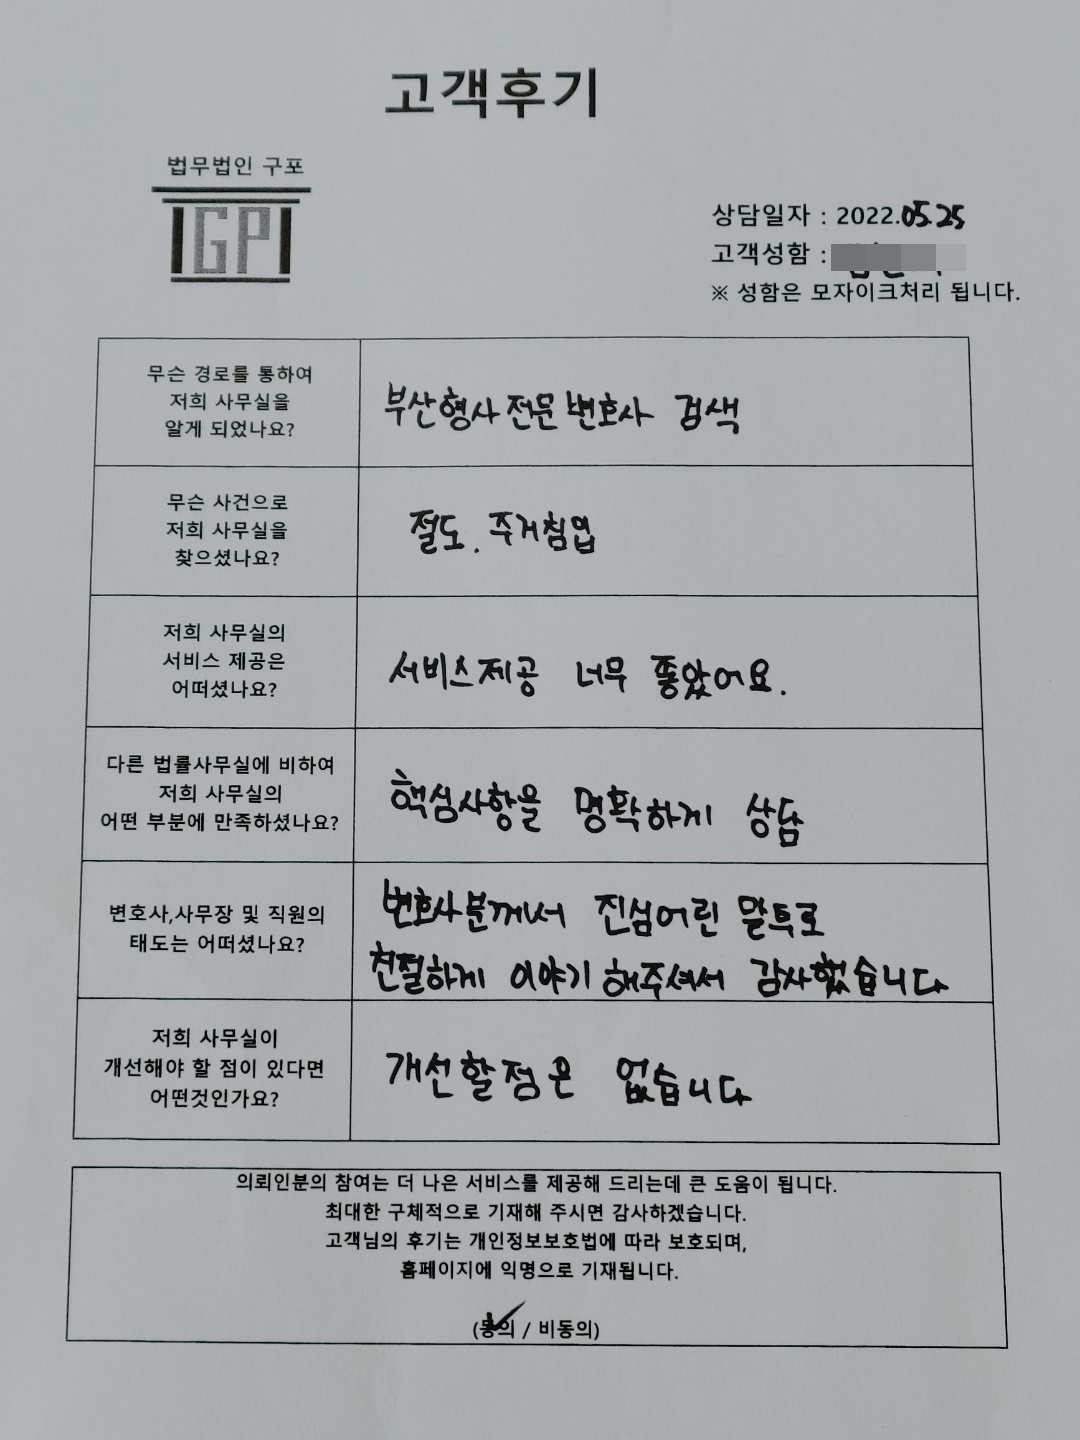 고객후기
법무법인 구포
IGPI
상담일자 : 2022.05.25
고객성함 :
※ 성함은 모자이크처리 됩니다.
무슨 경로를 통하여
저희 사무실을
알게 되었나요?
부산형사전문변호사 검색
무슨 사건으로
저희 사무실을
찾으셨나요?
절도. 주거침입
저희 사무실의
서비스 제공은
어떠셨나요?
서비스제공 너무 좋았어요.
다른 법률사무실에 비하여
저희 사무실의
어떤 부분에 만족하셨나요?
핵심사항을 명확하게 상담
변호사,사무장 및 직원의
태도는 어떠셨나요?
변호사분께서 진심어린 말투로
친절하게 이야기 해주셔서 감사했습니다
저희 사무실이
개선해야 할 점이 있다면
어떤것인가요?
개선할점은 없습니다
의뢰인분의 참여는 더 나은 서비스를 제공해 드리는데 큰 도움이 됩니다.
최대한 구체적으로 기재해 주시면 감사하겠습니다.
고객님의 후기는 개인정보보호법에 따라 보호되며,
홈페이지에 익명으로 기재됩니다.
(동의 / 비동의)